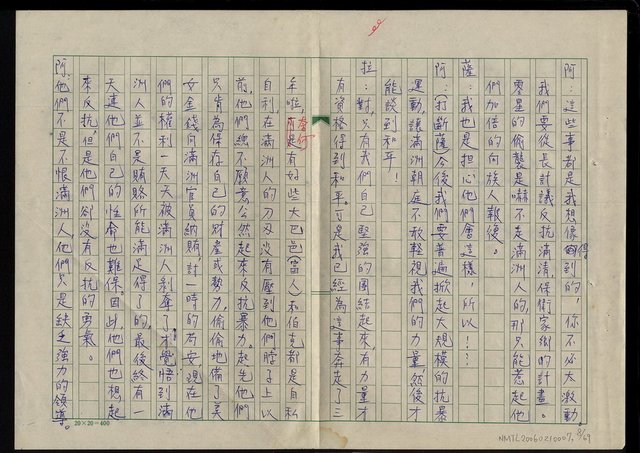 阿：這些事都是我想像得到的，你不必太激動
我們要從長計議反抗滿清保衛家鄉的計畫。
零星的偷襲是嚇不走滿洲人的，那只能惹起他
們加倍的向族人報復。
薩：我也是担心他們會這樣，所以！？
阿：（打斷薩）今後我們要普遍掀起大規模的抗暴
運動，讓滿洲朝庭不敢輕視我們的力量，然後才
能談到和平！
拉：對，只有我們自己堅強的團結起來有力量才
有資格得到和平。可是我已經為這事奔走了三
年啦，是有好些大巴邑（富人）和伯克都是自私
自利，在滿洲人的刀刃沒有壓到他們脖子上以
前，他們總不願意公然起來反抗暴力。起先他們
只肯為保存自己的財產或勢力，偷偷地備了美
女金錢向滿洲官員納賄，討一時的苟安，現在他
們的權利一天天被滿洲人剝奪了，才覺悟到滿
洲人並不是賄賂所能滿足得了的，最後終有一
天連他們自己的性命也難保。因此，他們也想起
來反抗，但是他們卻沒有反抗的勇氣。
阿：他們不是不恨滿洲人，他們只是缺乏強力的領導。
20×20=400
NMTL20060210007,
8/69